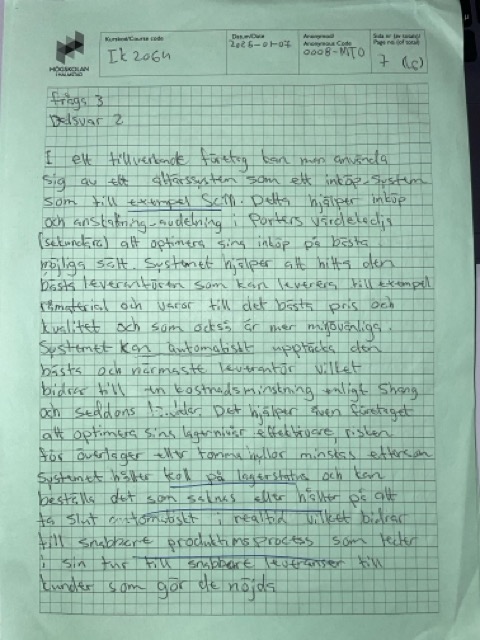 HÖGSKOLAN
I HALMSTAD
Kurskod/Course code
IK2064
Datum/Date
2026-01-07
Anonymkod
Anonymous Code
0008-MTD
Sida nr (av totalt)/
Page no. (of total)
7 (16)
fråga 3
Delsvar 2
I ett tillverkande företag kan man använda
sig av ett affärssystem som ett inköp-system
som till exempel SCM. Detta hjälper inköp
och anställning-avdelning i Porters värdekedja
(sekundära) att optimera sina inköp på bästa
möjliga sätt. Systemet hjälper att hitta den
bästa leverantören som kan leverera till exempel
råmaterial och varor till det bästa pris och
kvalitet och som också är mer miljövänliga.
Systemet kan automatiskt upptäcka den
bästa och närmaste leverantör vilket
bidrar till en kostnadsminskning enligt Shang
och Seddons Det hjälper även företaget
att optimera sina lagernivåer effektivare, risken
för överlager eller tomma hyllor minskas eftersom
systemet håller koll på lagerstatus och kan
beställa det som saknas eller håller på att
ta slut automatiskt i realtid vilket bidrar
till snabbare produktionsprocess som leder
i sin tur till snabbare leveranser till
kunder som gör de nöjda